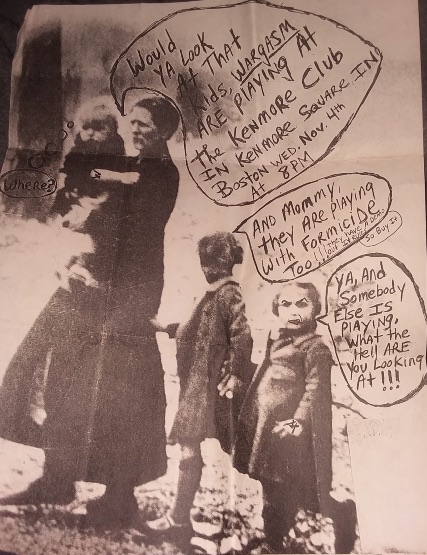 Would
YA LOOK
At That
Kids, WARGASM
ARE PLAYING At
the Kenmore Club
IN Kenmore Square IN
Boston WED. Nov. 4th
At 8 PM
Where?
AND Mommy,
they ARE PLAYING
With Formicide
Too!!!
So Buy It
YA, AND
Somebody
Else Is
PLAYING,
What the
Hell ARE
You Looking
At!!!